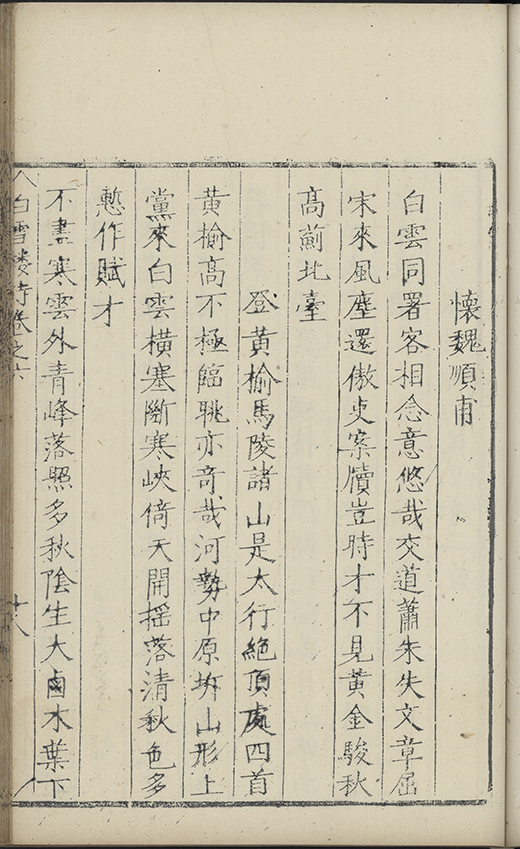 懷魏順甫
白雲同署客相念意悠哉交道蕭朱失文章屈
宋來風塵還傲吏案牘豈時才不見黃金駿秋
高薊北臺
登黃榆馬陵諸山是太行絕頂處四首
黃榆高不極臨眺亦奇哉河勢中原拆山形上
黨來白雲橫塞斷寒峽倚天開搖落清秋色多
慙作賦才
不盡寒雲外青峰落照多秋陰生大鹵木葉下
白雪樓詩卷之六
廿八